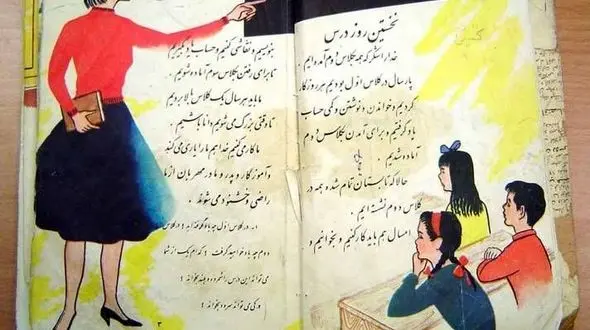 نخستین روز درس
خدا را شکر که همه بکلاس دوم آمده ایم .
پارسال در کلاس اول بودیم هر روز کار
کردیم و خواندن و نوشتن و کمی حساب
یاد گرفتیم و برای آمدن بکلاس دوم
آماده شدیم .
حالا که تابستان تمام شده و همه در
کلاس دوم نشسته ایم .
امسال هم باید کار کنیم و بخوانیم و
بنویسیم و نقاشی کنیم و حساب یاد بگیریم
تا برای رفتن بکلاس سوم آماده شویم .
ما باید هر سال یک کلاس بالا برویم
تا وقتی بزرگ می شویم دانا باشیم .
ما کار می کنیم خدا هم ما را یاری می کند
و آموزگار و پدر و مادر مهربان از ما
راضی و خشنود می شوند .
۱- در کلاس اول چه یاد گرفته اید ؟ در کلاس
دوم چه یاد خواهید گرفت ؟ کدام یک از شما
می تواند این درس را شمرده و بلند بخواند ؟
و کی می تواند
۳